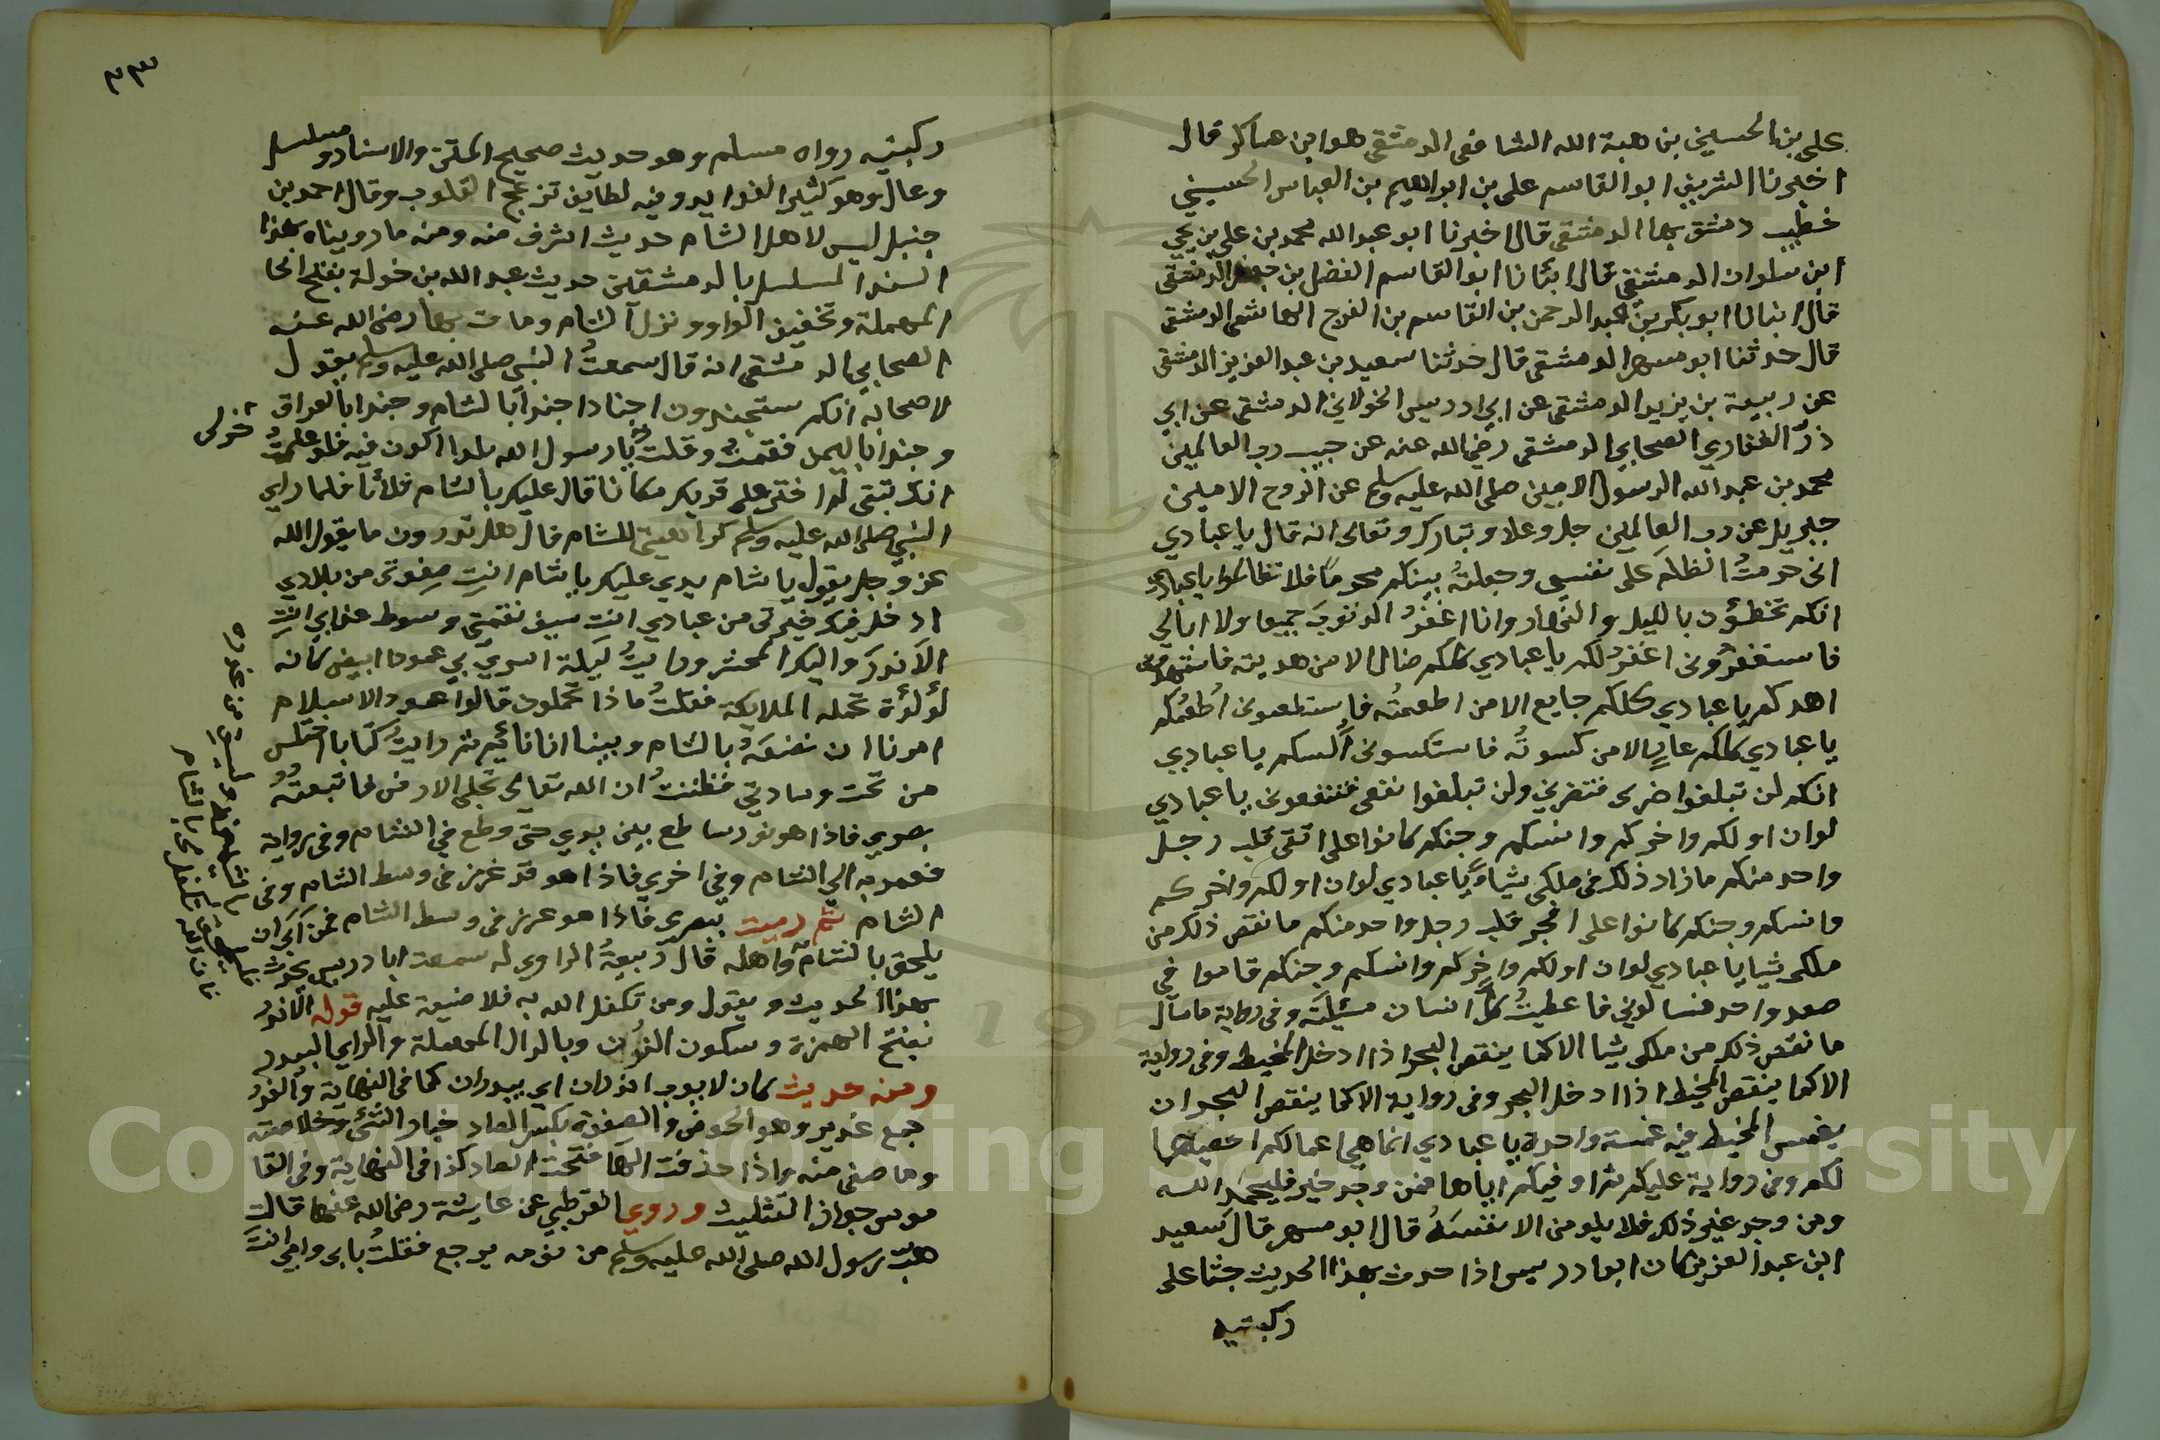 علي بن الحسين بن هبة الله الشافعي الدمشقي هو ابن عساكر قال
اخبرنا الشريف ابو القاسم علي بن ابراهيم بن العباس الحسيني
خطيب دمشق بها الدمشقي قال اخبرنا ابو عبد الله محمد بن علي بن يحيى
ابن سلوان الدمشقي قال انبأنا ابو القاسم الفضل بن جعفر الدمشقي
قال انبانا ابو بكر بن عبد الرحمن بن القاسم بن الفرج الهاشمي الدمشقي
قال حدثنا ابو مسهر الدمشقي قال حدثنا سعيد بن عبد العزيز الدمشقي
عن ربيعة بن يزيد الدمشقي عن ابي ادريس الخولاني الدمشقي عن ابي
ذر الغفاري الصحابي الدمشقي رضي الله عنه عن حبيب رب العالمين
محمد بن عبد الله الرسول الامين صلى الله عليه وسلم عن الروح الامين
جبريل عن رب العالمين جل وعلا وتبارك وتعالى انه قال يا عبادي
اني حرمتُ الظلم على نفسي وجعلتهُ بينكم محرمًا فلا تظالموا يا عبادي
انكم تخطؤن بالليل والنهار وانا اغفرُ الذنوبَ جميعا ولا ابالي
فاستغفروني اغفرْ لكم يا عبادي كلكم ضال الا من هديته فاستهدوني
اهدكم يا عبادي كلكم جايع الا من اطعمتُه فاستطعموني اُطعمْكم
يا عبادي كلكم عارٍ الا من كسوتُه فاستكسوني اكسكم يا عبادي
انكم لن تبلغوا ضرى فتضروني ولن تبلغوا نفعي فتنفعوني يا عبادي
لو ان اولكم واخركم وانسكم وجنكم كانوا على اتقى قلب رجل
واحد منكم ما زاد ذلك في ملكي شياءً يا عبادي لو ان اولكم واخركم
وانسكم وجنكم كانوا على افجر قلب رجل واحد منكم ما نقص ذلك من
ملكي شيا يا عبادي لو ان اولكم واخركم وانسكم وجنكم قاموا في
صعيد واحد فسالوني فاعطيتُ كلَّ انسان مسئلته وفي رواية ما سأل
ما نقص ذلك من ملكي شيا الا كما ينقص البحر اذا ادخل المخيط وفي رواية
الا كما ينقص المخيط اذا ادخل البحر وفي رواية الا كما ينقص البحر ان
يغمس المخيط فيه غمسة واحدة يا عبادي انما هي اعمالكم احصيها
لكم وفي رواية عليكم ثم اوفيكم اياها فمن وجد خير فليحمد الله
ومن وجد غير ذلك فلا يلومن الا نفسَهُ قال ابو مسهر قال سعيد
ابن عبد العزيز كان ابو ادريس اذا حدث بهذا الحديث جثا على
ركبتيه
٣٣
ركبتيه رواه مسلم وهو حديث صحيح المتن والاسناد ومسلسل
وعال وهو كثير الفوايد وفيه لطايف تزعج القلوب وقال احمد بن
حنبل ليس لاهل الشام حديث اشرف منه ومنه ما رويناه بهذا
السند المسلسل بالدمشقين حديث عبد الله بن خولة بفتح الحا
المهملة وتخفيف الواو ونزل الشام ومات بها رضى الله عنه
الصحابي الدمشقي انه قال سمعتُ النبي صلى الله عليه وسلم يقول
لاصحابه انكم ستجندون اجنادا جندا بالشام وجندا بالعراق
وجندا باليمن فقمتُ وقلت يا رسول الله بلدا اكون فيه فلو علمتُ
خرلى
انك تبقى لم اختر على قربك مكانا قال عليك بالشام ثلاثا فلما راي
النبي صلى الله عليه وسلم كراهيتي للشام قال هل تدرون ما يقول الله
عز وجل يقول يا شام يدي عليك يا شام انتِ صِفوتي من بلادي
ادخل فيك خيرتي من عبادي انت سيف نقمتي وسوط عذابي انتِ
الاندرَ واليك المحشر ورايتُ ليلة اسري بي عمودا ابيض كانه
لؤلؤة تحمله الملايكة فقلتُ ماذا تحملون قالوا عمود الاسلام
امرنا ان نضعهُ بالشام وبينا انا نائم ثم رايتُ كتابا اختلس
من تحت وسادتي فظننتُ ان الله تعالى تجلى الارض فاتبعتُه
بصري فاذا هو نور ساطع بين يدي حتى وضع في الشام وفي رواية
فعمد به الي الشام وفي اخرى فاذا هو قد غرز في وسط الشام وفي
الشام ثم رميت ببصري فاذا هو غرز في وسط الشام فمن ابى ان
يلحق بالشام واهله قال ربيعةُ الراوي له سمعت ابا دريس يحدث
بهذا الحديث ويقول ومن تكفل الله به فلا ضيعة عليه قوله الاندرُ
بفتح الهمزة وسكون النُون وبالدال المهملة والراي البيدر
ومنه حديث كان لايوب اندران اي بيدران كما في النهاية والغدرُ
جمع غدير وهو الحوض والصفوة بكسر الصاد خيار الشئ وخلاصته
وما صفى منه واذا حذفت الها فتحت الصاد كذا في النهاية وفي القا
موس جواز التثليث وروي القرطبي عن عايشة رضى الله عنها قالت
هبّ رسول الله صلى الله عليه وسلم من نومه يرجع فقلتُ بابي وامي انتَ